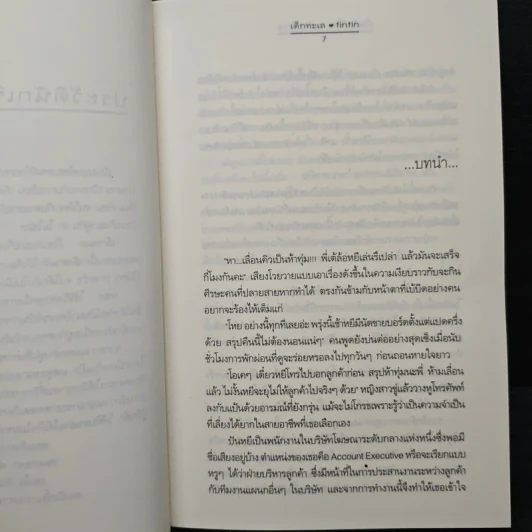 เด็กทะเล ♥ tintin
7
...บทนำ...
"หา...เลื่อนคิวเป็นห้าทุ่ม!!! พี่เต้ล้อหยีเล่นรึเปล่า แล้วมันจะเสร็จ
กี่โมงกันคะ" เสียงโวยวายแบบเอาเรื่องดังขึ้นในความเงียบราวกับจะกิน
ศีรษะคนที่ปลายสายหากทำได้ ตรงกันข้ามกับหน้าตาที่เบ้บึดอย่างคน
อยากจะร้องไห้เต็มแก่
"โหย อย่างนี้ทุกทีเลยอ่ะ พรุ่งนี้เช้าหยีมีนัดขายบอร์ดตั้งแต่แปดครึ่ง
ด้วย สรุปคืนนี้ไม่ต้องนอนแน่ๆ" คนพูดยังบ่นต่ออย่างสุดเซ็งเมื่อนับ
ชั่วโมงการพักผ่อนที่ดูจะร่อยหรอลงไปทุกวันๆ ก่อนถอนหายใจยาว
"โอเคๆ เดี๋ยวหยีโทรไปบอกลูกค้าก่อน สรุปห้าทุ่มนะพี่ ห้ามเลื่อน
แล้ว ไม่งั้นหยีจะยุไม่ให้ลูกค้าไปจริงๆ ด้วย" หญิงสาวขู่แล้ววางหูโทรศัพท์
ลงกับแป้นด้วยอารมณ์ที่ยังกรุ่น แม้จะไม่โกรธเพราะรู้ว่าเป็นความจำเป็น
ที่เลี่ยงได้ยากในสายอาชีพที่เธอเลือกเอง
ปันหยีเป็นพนักงานในบริษัทโฆษณาระดับกลางแห่งหนึ่งซึ่งพอมี
ชื่อเสียงอยู่บ้าง ตำแหน่งของเธอคือ Account Executive หรือจะเรียกแบบ
หรูๆ ได้ว่าฝ่ายบริหารลูกค้า ซึ่งมีหน้าที่ในการประสานงานระหว่างลูกค้า
กับทีมงานแผนกอื่นๆ ในบริษัท และจากการทำงานนี้จึงทำให้เธอเข้าใจ